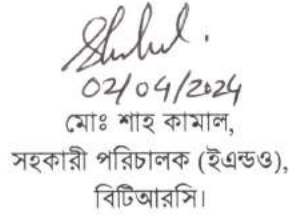 02/04/2024
মোঃ শাহ কামাল,
সহকারী পরিচালক (ইএন্ডও),
বিটিআরসি।